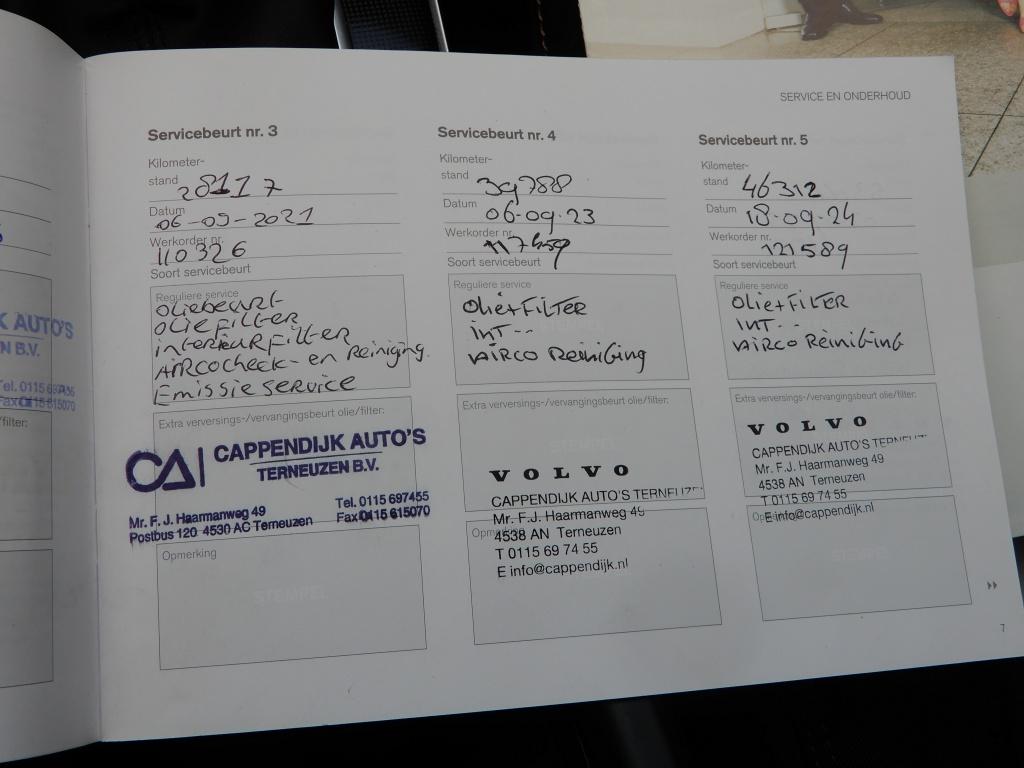 SERVICE EN ONDERHOUD
Servicebeurt nr. 3
Kilometer-
stand 28117
Datum 06-09-2021
Werkorder nr. 110326
Soort servicebeurt
Reguliere service
oliebeurt
olie filter
interieurfilter
Aircocheck- en Reiniging.
Emissieservice
Extra verversings-/vervangingsbeurt olie/filter:
CA CAPPENDIJK AUTO'S
TERNEUZEN B.V.
Mr. F. J. Haarmanweg 49 Tel. 0115 697455
Postbus 120 4530 AC Terneuzen Fax 0115 615070
Opmerking
STEMPEL
Servicebeurt nr. 4
Kilometer-
stand 39788
Datum 06-09-23
Werkorder nr.
Soort servicebeurt
Reguliere service
Olie+FILTER
INT--
AIRCO Reiniging
Extra verversings-/vervangingsbeurt olie/filter:
STEMPEL
VOLVO
CAPPENDIJK AUTO'S
Mr. F.J. Haarmanweg 49
4538 AN Terneuzen
T 0115 69 74 55
E info@cappendijk.nl
Servicebeurt nr. 5
Kilometer-
stand 46312
Datum 18-09-24
Werkorder nr. 121589
Soort servicebeurt
Reguliere service
Olie+FilTER
INT--
AIRCO Reiniging
Extra verversings-/vervangingsbeurt olie/filter:
VOLVO
CAPPENDIJK AUTO'S
Mr. F.J. Haarmanweg 49
4538 AN Terneuzen
T 0115 69 74 55
E info@cappendijk.nl
7
K AUTO'S
N B.V.
Tel. 0115
Fax 0115 615070
/filter: